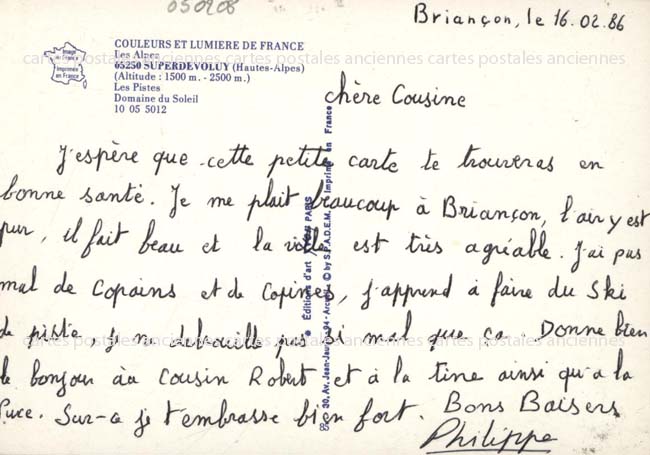 050208
Briançon, le 16.02.86
Image en France
Imprimée en France
COULEURS ET LUMIERE DE FRANCE
Les Alpes
65250 SUPERDEVOLUY (Hautes-Alpes)
(Altitude : 1500 m. - 2500 m.)
Les Pistes
Domaine du Soleil
10 05 5012
cartes postales anciennes cartes postales anciennes cartes postales anciennes cartes postales anciennes
chère Cousine
J'espère que cette petite carte te trouveras en
bonne santé. Je me plait beaucoup à Briançon, l'air y est
pur, il fait beau et la ville est très agréable. J'ai pas
mal de Copains et de Copines, j'apprend à faire du Ski
de piste, je me debrouille pas si mal que ça. Donne bien
le bonjour au Cousin Robert et à la tine ainsi qu'a la
Puce. Sur-ce je t'embrasse bien fort. Bons Baisers
Philippe
cartes postales anciennes cartes postales anciennes cartes postales anciennes cartes postales anciennes
® Editions d'art PARIS
30, Av. Jean-Jaurès, 94 - © by S.P.A.D.E.M. Imprimé en France